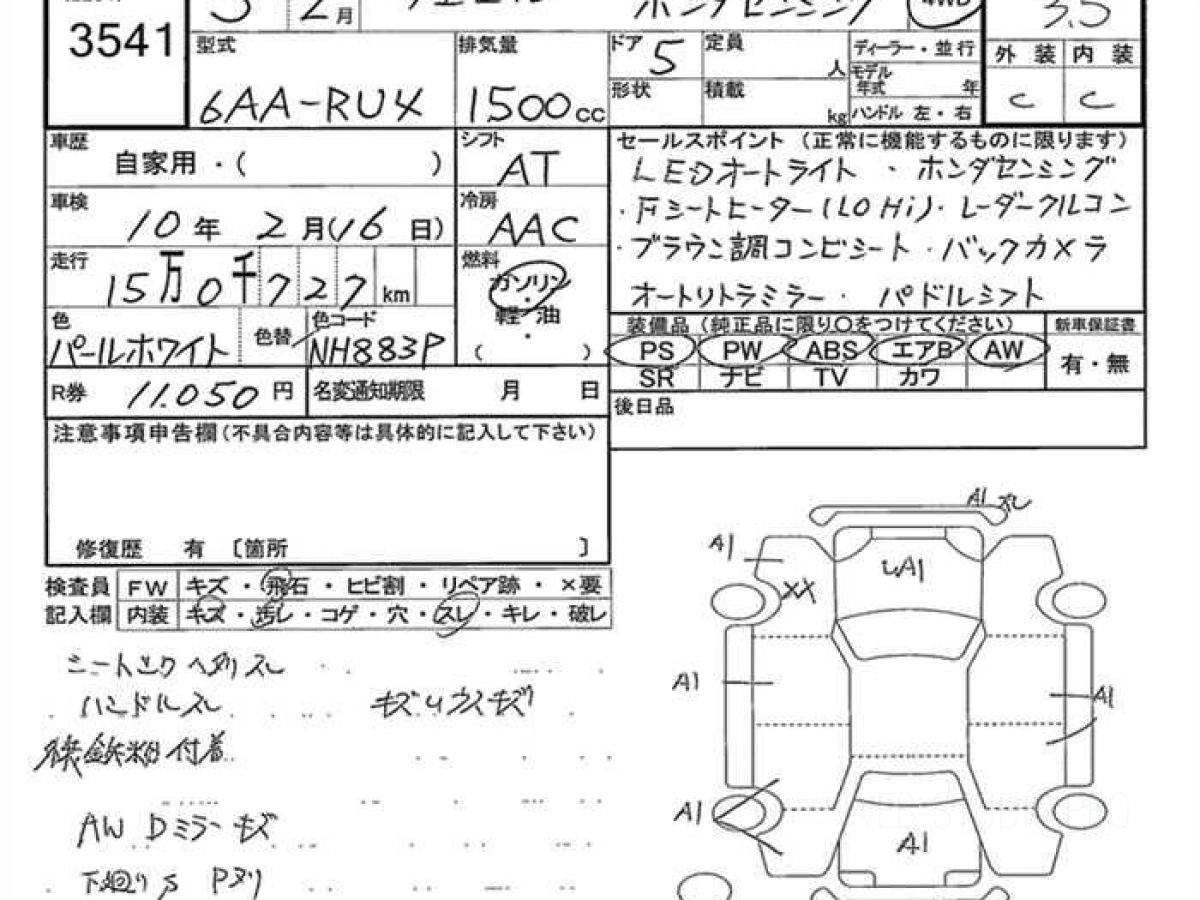 3 2月 ホンダセンシング 4WD 3.5
3541
型式 6AA-RU4
排気量 1500cc
ドア 5
定員 人
ディーラー・並行
形状
積載 kg
モデル年式 年
ハンドル 左・右
外装 内装
C C
車歴 自家用・( )
シフト AT
セールスポイント (正常に機能するものに限ります)
LEDオートライト ・ ホンダセンシング
・Fシートヒーター(LO Hi)・レーダークルコン
・ブラウン調コンビシート・バックカメラ
オートリトラミラー・ パドルシフト
車検 10年 2月(16日)
冷房 AAC
走行 15万0千727km
燃料 ガソリン・軽・油
・
( )
色 パールホワイト
色替
色コード NH883P
装備品 (純正品に限り○をつけてください)
新車保証書
PS PW ABS エアB AW
SR ナビ TV カワ
有・無
R券 11.050円
名変通知期限 月 日
後日品
注意事項申告欄(不具合内容等は具体的に記入して下さい)
修復歴 有 〔箇所 〕
検査員 FW キズ・飛石・ヒビ割・リペア跡・×要
記入欄 内装 キズ・汚レ・コゲ・穴・スレ・キレ・破レ
ハンドルスレ
鉄粉付着
AW Dミラーキズ
下廻りS Pヌリ
A1
A1
A1
XX
A1
A1
A1
A1